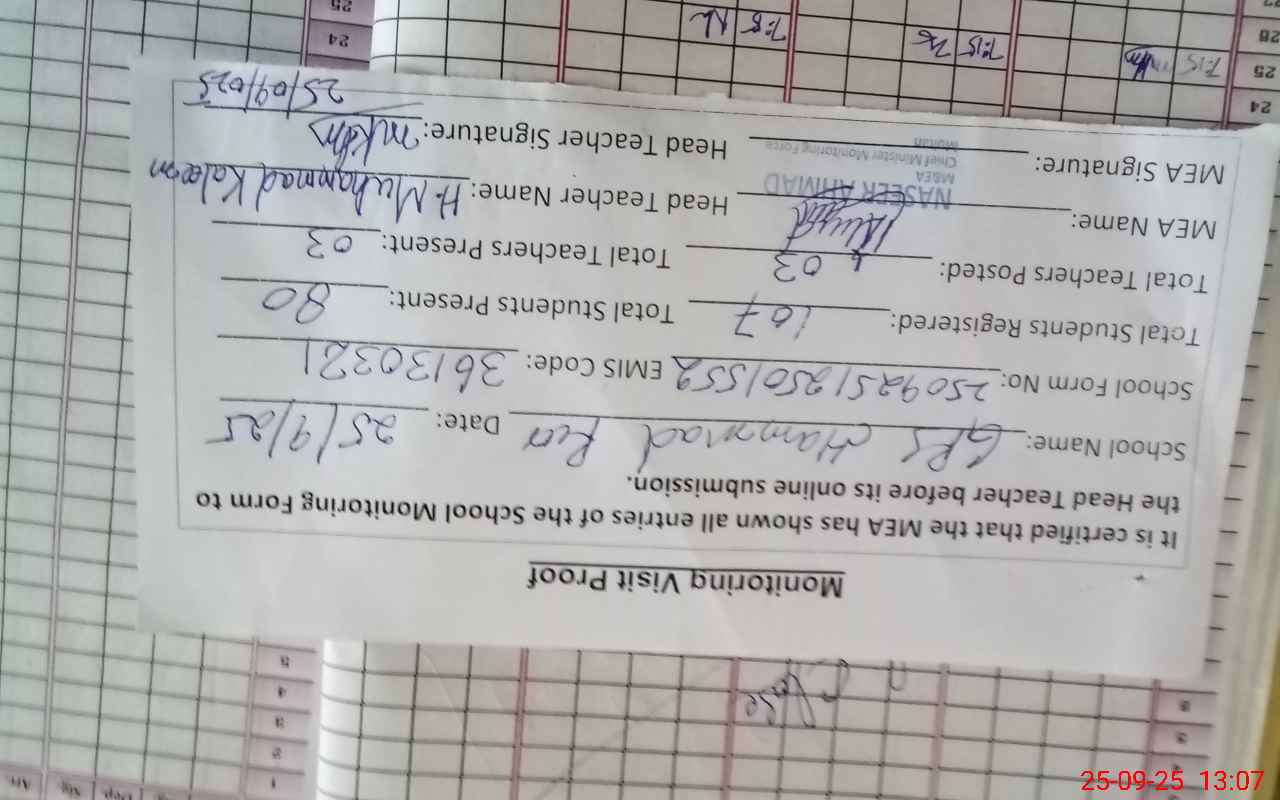 Monitoring Visit Proof
It is certified that the MEA has shown all entries of the School Monitoring Form to
the Head Teacher before its online submission.
School Name: GPS Hammad Pur Date: 25/9/25
School Form No: 25092512501552 EMIS Code: 36130321
Total Students Registered: 107 Total Students Present: 80
Total Teachers Posted: 03 Total Teachers Present: 03
MEA Name: Head Teacher Name: H. Muhammad Kaleem
NASEER AHMAD
M&EA
Chief Minister Monitoring Force
Multan
MEA Signature: Head Teacher Signature:
25/09/025
24
25
26
7:15
7:15
7:15
24
25
1
2
3
4
5
Arr.
Sig.
Dep.
25-09-25 13:07